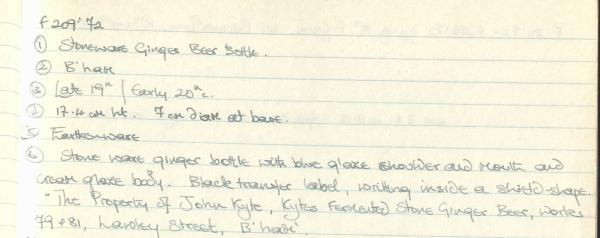 F 209'72
① Stoneware Ginger Beer Bottle.
② B'ham
③ Late 19th / Early 20th c.
④ 17.4 cm ht. 7 cm diam at base.
5 Earthenware
⑥ Stone ware ginger bottle with blue glaze shoulder and mouth and
cream glaze body. Black transfer label, writing inside a shield-shape.
"The Property of John Kyte, Kytes Fermented Stone Ginger Beer, Works
79 & 81, Lawley Street, B'ham'.